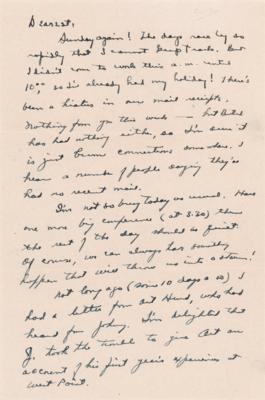 Dearest:
Sunday again! The days race by so
rapidly that I cannot keep track. But
I didn't come to work this a.m. until
10:00, so I've already had my holiday! There's
been a hiatus in our mail receipts.
Nothing from you this week — but Butch
has had nothing either, so I'm sure it
is just broken connections somewhere. I
hear a number of people saying they've
had no recent mail.
I'm not so busy today as usual. Have
one more big conference (at 3:30) then
the rest of the day should be quiet.
Of course, we can always have something
happen that will throw us into a storm!
Not long ago (some 10 days ago) I
had a letter from Art Hurd, who had
heard from Johnny. I'm delighted that
J. took the trouble to give Art an
account of his first year's experiences at
West Point.